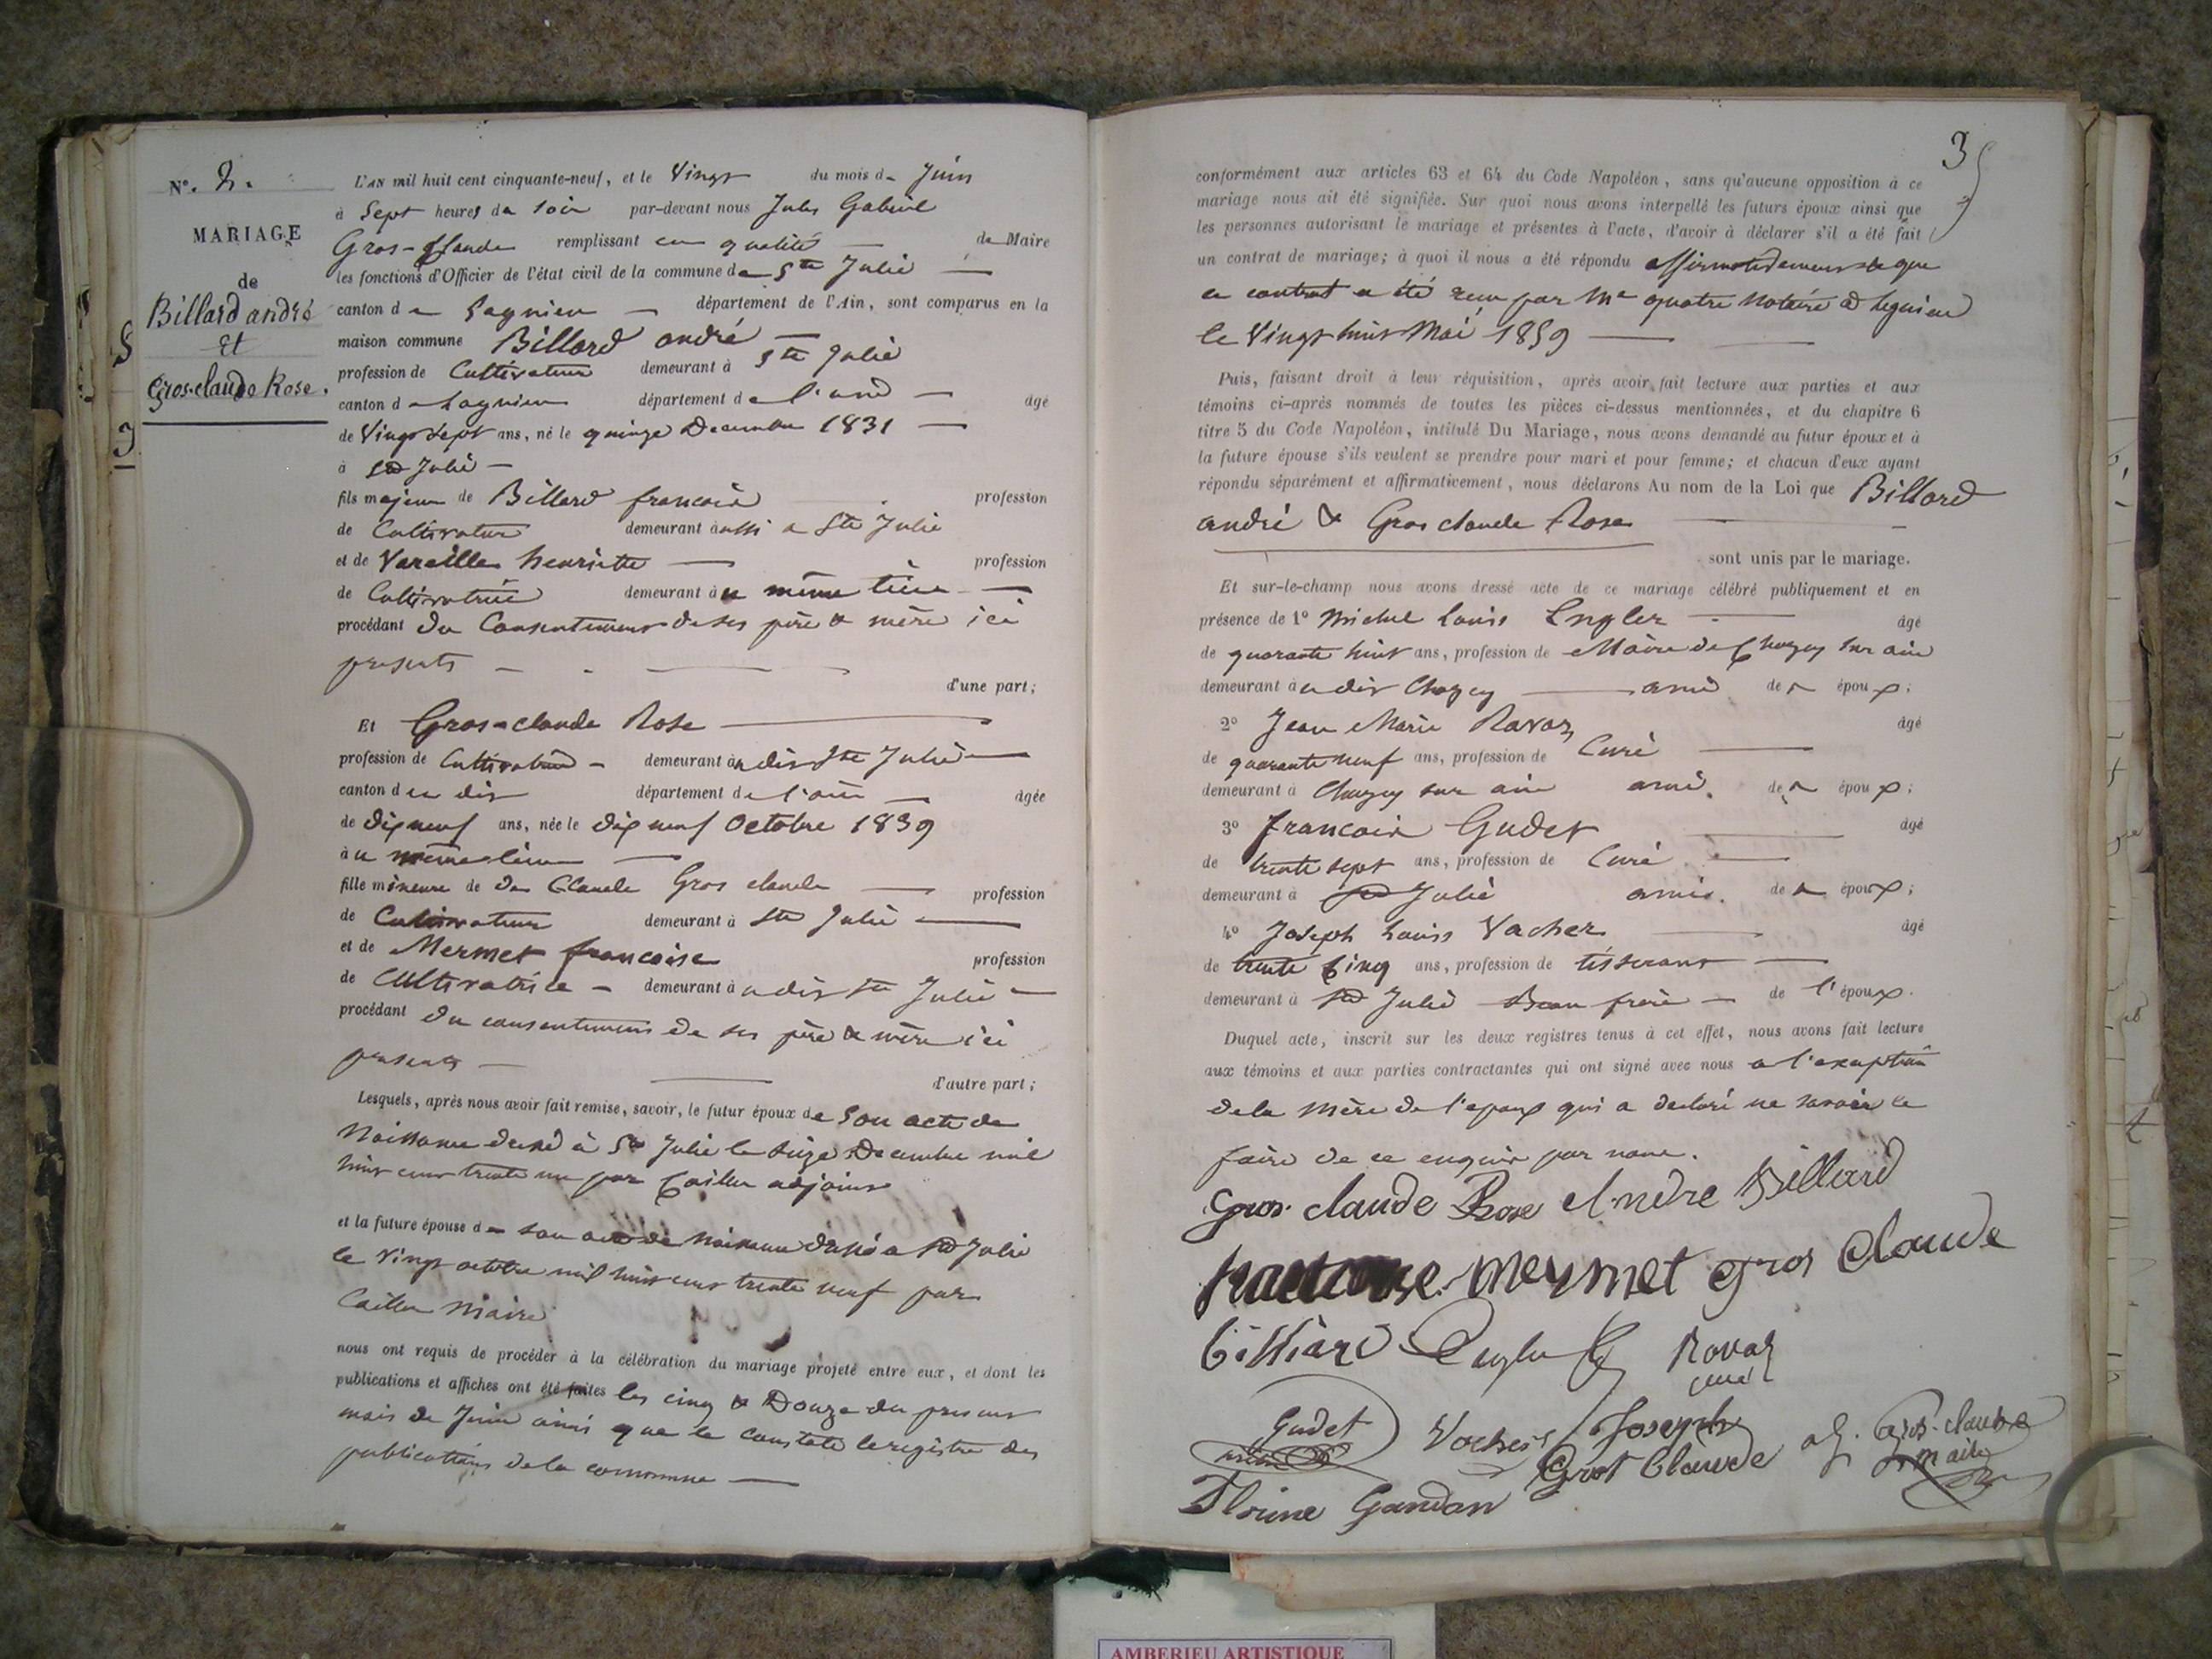 N°. 2.
MARIAGE
de
Billard andré
et
Gros-claude Rose.
L'AN mil huit cent cinquante-neuf, et le Vingt du mois de Juin
à Sept heures du soir par-devant nous Jules Gabriel
Gros-Claude remplissant en qualité de Maire
les fonctions d'Officier de l'état civil de la commune de Ste Julie
canton de Lagnieu département de l'Ain, sont comparus en la
maison commune Billard andré
profession de Cultivateur demeurant à Ste Julie
canton de Lagnieu département de l'ain âgé
de Vingt Sept ans, né le quinze Decembre 1831
à Ste Julie
fils majeur de Billard francois profession
de Cultivateur demeurant à aussi a Ste Julie
et de Vareille henriette profession
de Cultivatrice demeurant à u même lieu
procédant du Consentement de ses père & mère ici
presents
d'une part;
Et Gros-claude Rose
profession de Cultivatrice demeurant à u dit Ste Julie
canton du dit département de l'ain âgée
de dix neuf ans, née le dix neuf Octobre 1839
à u même lieu
fille mineure de de Claude Gros claude profession
de Cultivateur demeurant à Ste Julie
et de Mermet francoise profession
de Cultivatrice demeurant à u dit Ste Julie
procédant du consentement de ses père & mère ici
presents
d'autre part;
Lesquels, après nous avoir fait remise, savoir, le futur époux de Son acte de
Naissance dressé à Ste Julie le Seize Decembre mil
huit cent trente un par Caillu adjoint
et la future épouse de son acte de Naissance dressé a Ste Julie
le Vingt octobre mil huit cent trente neuf par
Caillu Maire
nous ont requis de procéder à la célébration du mariage projeté entre eux, et dont les
publications et affiches ont été faites les cinq & Douze du present
mois de Juin ainsi que le constate le registre des
publications de la commune
3
conformément aux articles 63 et 64 du Code Napoléon, sans qu'aucune opposition à ce
mariage nous ait été signifiée. Sur quoi nous avons interpellé les futurs époux ainsi que
les personnes autorisant le mariage et présentes à l'acte, d'avoir à déclarer s'il a été fait
un contrat de mariage; à quoi il nous a été répondu affirmativement que
ce contrat a été reçu par Me quatre Notaire à Lagnieu
le Vingt huit Mai 1859
Puis, faisant droit à leur réquisition, après avoir fait lecture aux parties et aux
témoins ci-après nommés de toutes les pièces ci-dessus mentionnées, et du chapitre 6
titre 5 du Code Napoléon, intitulé Du Mariage, nous avons demandé au futur époux et à
la future épouse s'ils veulent se prendre pour mari et pour femme; et chacun d'eux ayant
répondu séparément et affirmativement, nous déclarons Au nom de la Loi que Billard
andré & Gros claude Rose
sont unis par le mariage.
Et sur-le-champ nous avons dressé acte de ce mariage célébré publiquement et en
présence de 1° Michel Louis Engler âgé
de quarante huit ans, profession de Maire de Chazey sur ain
demeurant à u dit Chazey ami des époux;
2° Jean Marie Ravaz âgé
de quarante neuf ans, profession de Curé
demeurant à Chazey sur ain ami des époux;
3° francois Gudet âgé
de trente sept ans, profession de Curé
demeurant à Ste Julie amis des époux;
4° Joseph Louis Vacher âgé
de trente Cinq ans, profession de tisserant
demeurant à Ste Julie Beau frère de l'époux.
Duquel acte, inscrit sur les deux registres tenus à cet effet, nous avons fait lecture
aux témoins et aux parties contractantes qui ont signé avec nous a l'exception
de la mère de l'epoux qui a declaré ne savoir le
faire de ce enquis par nous.
Gros claude Rose Andre Billard
francoise mermet gros Claude
billiard Engler Ravaz
curé
Gudet Vacher Joseph Gros-claude
maire
Grot Claude
Florine Gandan
AMBERIEU ARTISTIQUE